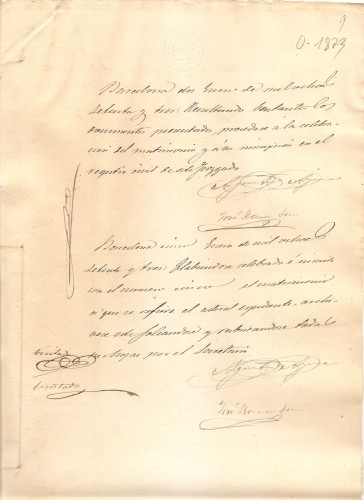 9
O. 1873
Barcelona dos Enero de mil ochoc.
setenta y tres. Resultando bastantes los
documentos presentados, procedase a la celebra
cion del matrimonio y a su inscripcion en el
registro civil de este Juzgado
Barcelona cinco Enero de mil ochoc.
setenta y tres. Habiendose celebrado é inscrito
con el numero cinco el matrimonio
a que se refiere el actual espediente, archi
vese este foliandose y rubricandose todas
las hojas por el Secretario